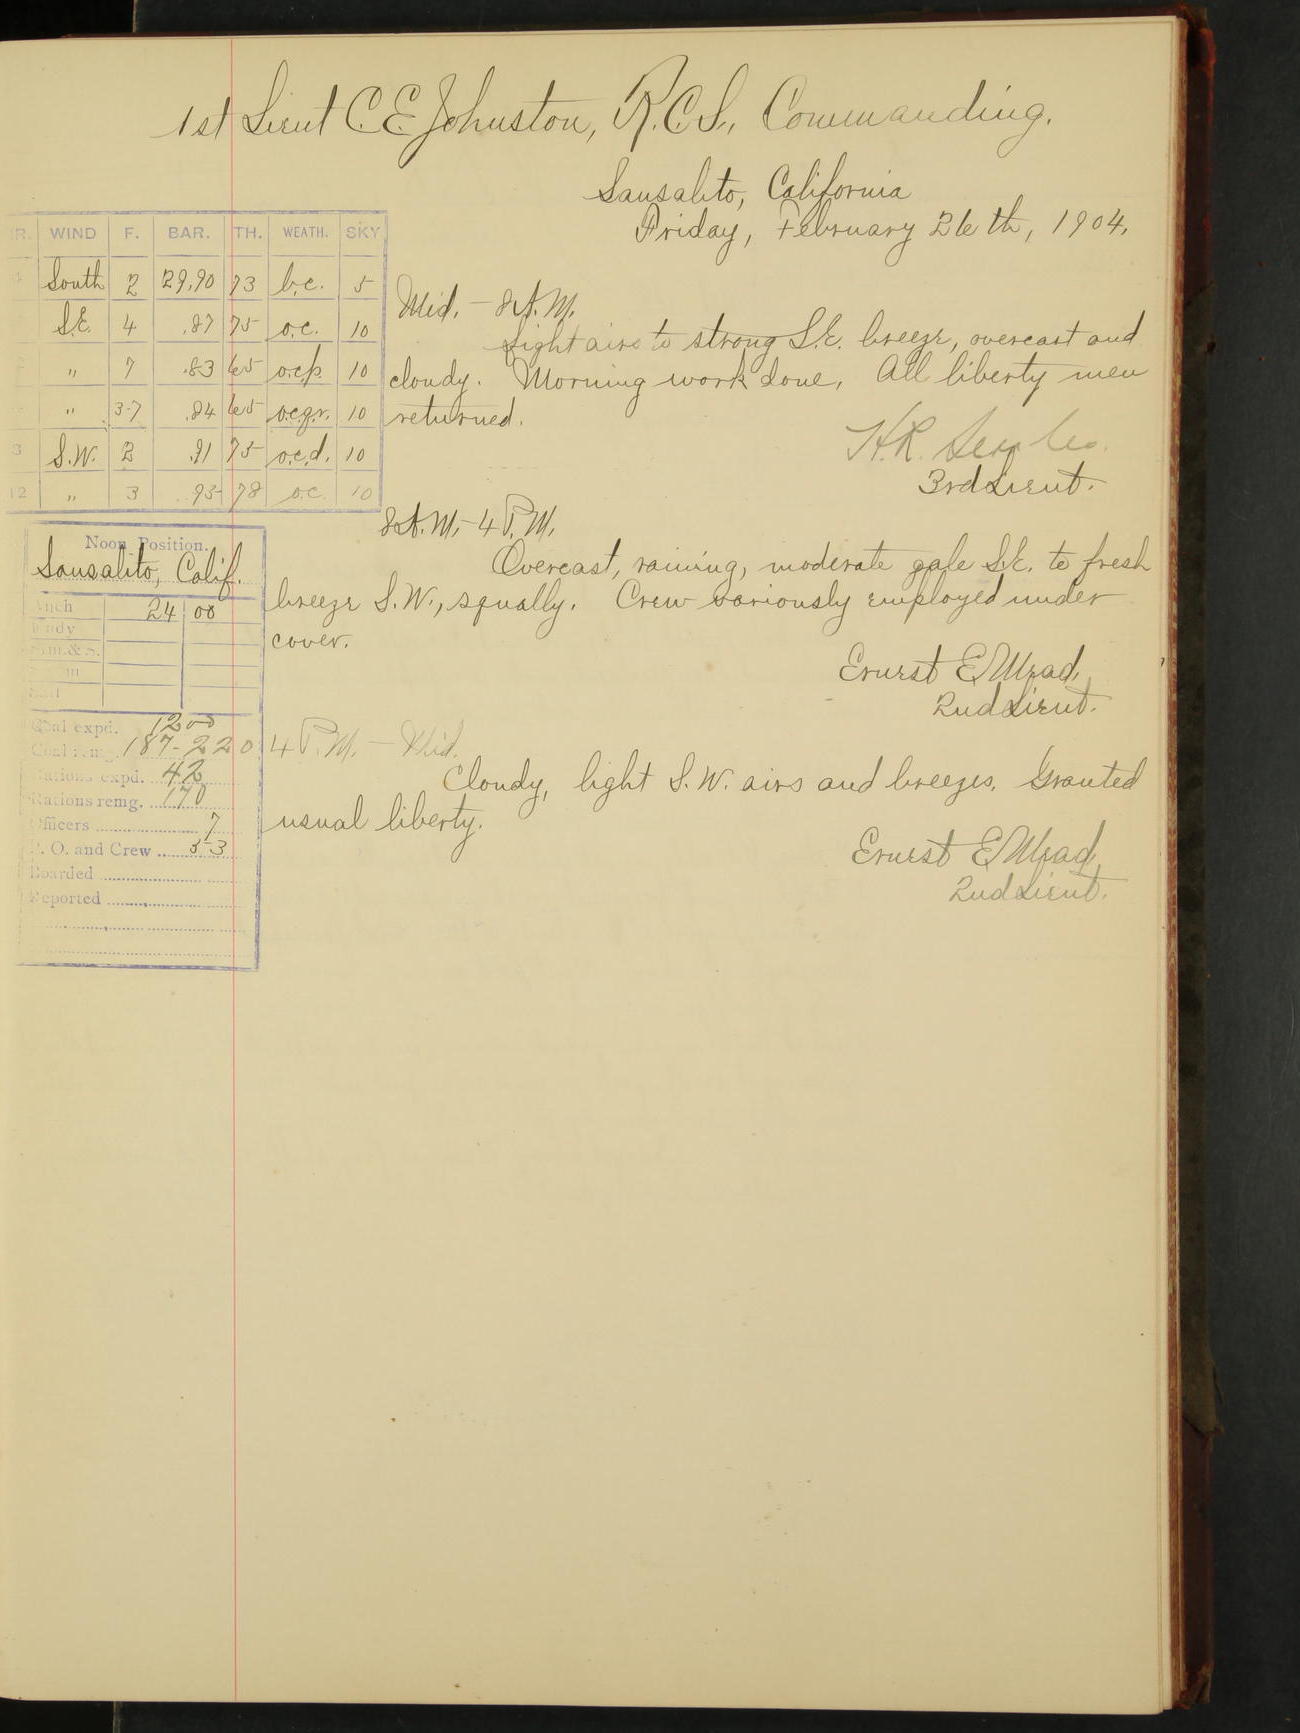 1st Lieut C. E. Johnston, R.C.S., Commanding.
Sausalito, California
Friday, February 26th, 1904.
R. WIND F. BAR. TH. WEATH. SKY
South 2 29.90 73 b.c. 5
S.E. 4 .87 75 o.c. 10
" 7 .83 65 o.c.p. 10
" 3-7 .84 65 o.c.g.r. 10
S.W. 2 .91 75 o.c.d. 10
12 " 3 .93 78 o.c. 10
Mid. - 8 A.M.
Light airs to strong S.E. breeze, overcast and
cloudy. Morning work done. All liberty men
returned.
H. R.
3rd Lieut.
Noon Position.
Sausalito, Calif.
24 00
Coal expd. 1200
Coal remg. 187-220
Rations expd. 42
Rations remg. 170
Officers 7
P. O. and Crew 53
Boarded
Reported
8 A.M. - 4 P.M.
Overcast, raining, moderate gale S.E. to fresh
breeze S.W., squally. Crew variously employed under
cover.
Ernest E. Mead,
2nd Lieut.
4 P.M. - Mid.
Cloudy, light S.W. airs and breezes. Granted
usual liberty.
Ernest E. Mead,
2nd Lieut.